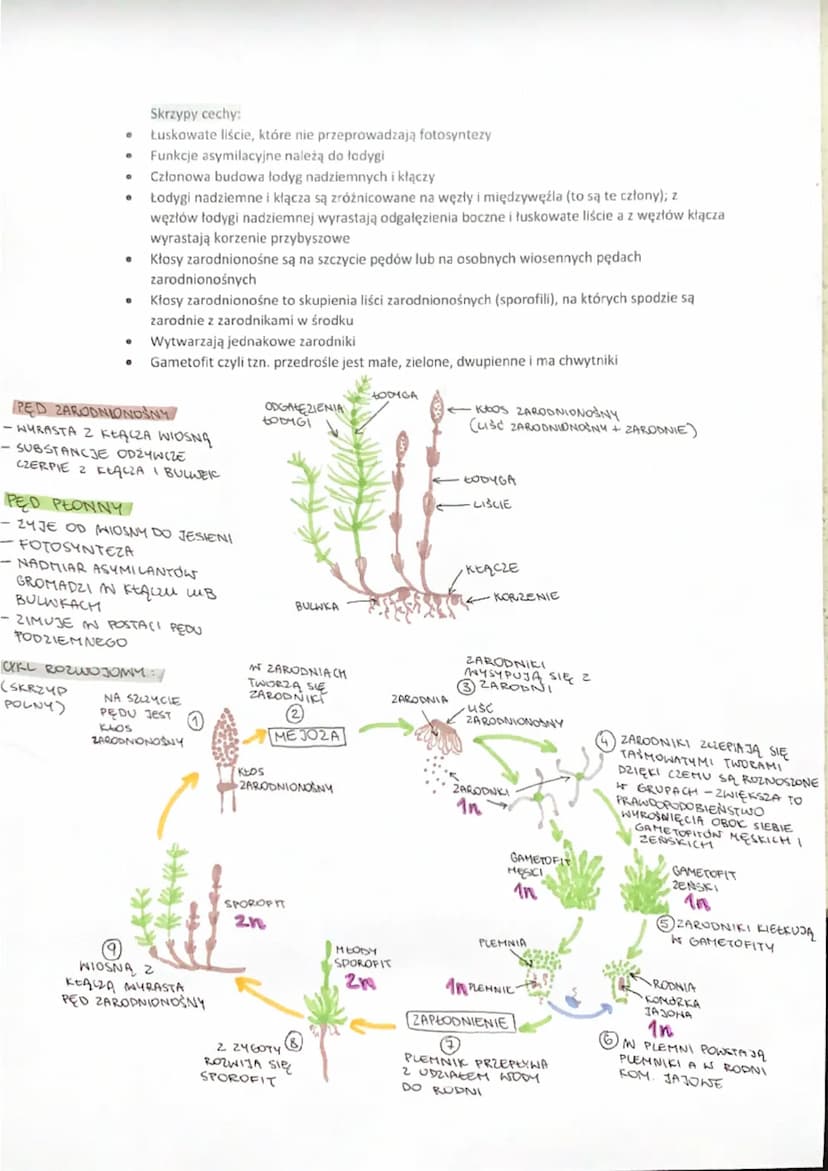 Skrzypy cechy:
• Łuskowate liście, które nie przeprowadzają fotosyntezy
• Funkcje asymilacyjne należą do łodygi
• Członowa budowa łodyg nadziemnych i kłączy
• Łodygi nadziemne i kłącza są zróżnicowane na węzły i międzywęźla (to są te człony); z
węzłów łodygi nadziemnej wyrastają odgałęzienia boczne i łuskowate liście a z węzłów kłącza
wyrastają korzenie przybyszowe
• Kłosy zarodnionośne są na szczycie pędów lub na osobnych wiosennych pędach
zarodnionośnych
• Kłosy zarodnionośne to skupienia liści zarodnionośnych (sporofili), na których spodzie są
zarodnie z zarodnikami w środku
• Wytwarzają jednakowe zarodniki
• Gametofit czyli tzn. przedrośle jest małe, zielone, dwupienne i ma chwytniki
PĘD ZARODNIONOŚNY
- WYRASTA Z KŁĄCZA WIOSNĄ
- SUBSTANCJE ODŻYWCZE
CZERPIE Z KŁĄCZA I BULWEK
PĘD PŁONNY
- ŻYJE OD WIOSNY DO JESIENI
- FOTOSYNTEZA
- NADMIAR ASYMILANTÓW
GROMADZI W KŁĄCZU LUB
BULWKACH
- ZIMUJE W POSTACI PĘDU
PODZIEMNEGO
ODGAŁĘZIENIA
ŁODYGI
ŁODYGA
KŁOS ZARODNIONOŚNY
(LIŚĆ ZARODNIONOŚNY + ZARODNIE)
ŁODYGA
LIŚCIE
KŁĄCZE
KORZENIE
BULWKA
CYKL ROZWOJOWY:
(SKRZYP
POLNY)
NA SZCZYCIE
PĘDU JEST
KŁOS
ZARODNIONOŚNY
1
KŁOS
ZARODNIONOŚNY
W ZARODNIACH
TWORZĄ SIĘ
ZARODNIKI
2
MEJOZA
ZARODNIKI
WYSYPUJĄ SIĘ Z
3 ZARODNI
ZARODNIA
LIŚĆ
ZARODNIONOŚNY
ZARODNIKI
1n
4 ZARODNIKI ZLEPIAJĄ SIĘ
TAŚMOWATYMI TWORAMI
DZIĘKI CZEMU SĄ ROZNOSZONE
W GRUPACH - ZWIĘKSZA TO
PRAWDOPODOBIEŃSTWO
WYROŚNIĘCIA OBOK SIEBIE
GAMETOFITÓW MĘSKICH I
ŻEŃSKICH
GAMETOFIT
MĘSKI
1n
GAMETOFIT
ŻEŃSKI
1n
5 ZARODNIKI KIEŁKUJĄ
W GAMETOFITY
PLEMNIA
1n PLEMNIK
RODNIA
KOMÓRKA
JAJOWA
1n
6 W PLEMNI POWSTAJĄ
PLEMNIKI A W RODNI
KOM. JAJOWE
ZAPŁODNIENIE
7
PLEMNIK PRZEPŁYWA
Z UDZIAŁEM WODY
DO RODNI
MŁODY
SPOROFIT
2n
8
Z ZYGOTY
ROZWIJA SIĘ
SPOROFIT
SPOROFIT
2n
9
WIOSNĄ Z
KŁĄCZA WYRASTA
PĘD ZARODNIONOŚNY